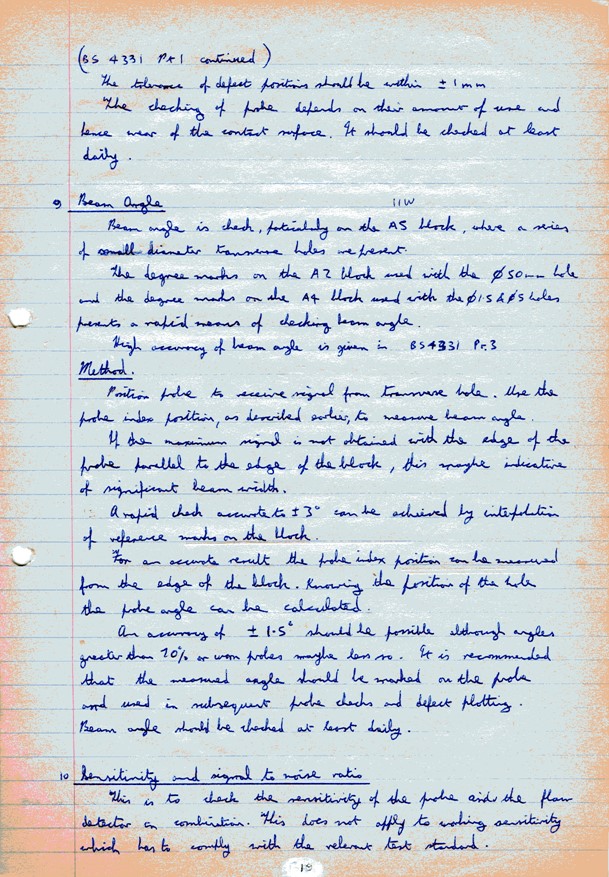 (BS 4331 Pt 1 continued)
The tolerance of defect positions should be within ± 1 mm
The checking of probe depends on their amount of use and
hence wear of the contact surface. It should be checked at least
daily.
9 Beam Angle 11W
Beam angle is check, particularly on the A5 block, where a series
of small diameter transverse holes are present.
The degree marks on the A2 block used with the Ø50mm hole
and the degree marks on the A4 block used with the Ø1.5 & Ø5 holes
presents a rapid means of checking beam angle.
High accuracy of beam angle is given in BS4331 Pt.3
Method.
Position probe to receive signal from transverse hole. Use the
probe index position, as described earlier, to measure beam angle.
If the maximum signal is not obtained with the edge of the
probe parallel to the edge of the block, this maybe indicative
of significant beam width.
A rapid check accurate to ± 3° can be achieved by interpolation
of reference marks on the block.
For an accurate result the probe index position can be measured
from the edge of the block. Knowing the position of the hole
the probe angle can be calculated.
An accuracy of ± 1.5° should be possible although angles
greater than 70% or worn probes maybe less so. It is recommended
that the measured angle should be marked on the probe
and used in subsequent probe checks and defect plotting.
Beam angle should be checked at least daily.
10 Sensitivity and signal to noise ratio
This is to check the sensitivity of the probe and the flaw
detector in combination. This does not apply to working sensitivity
which has to comply with the relevant test standard.
19